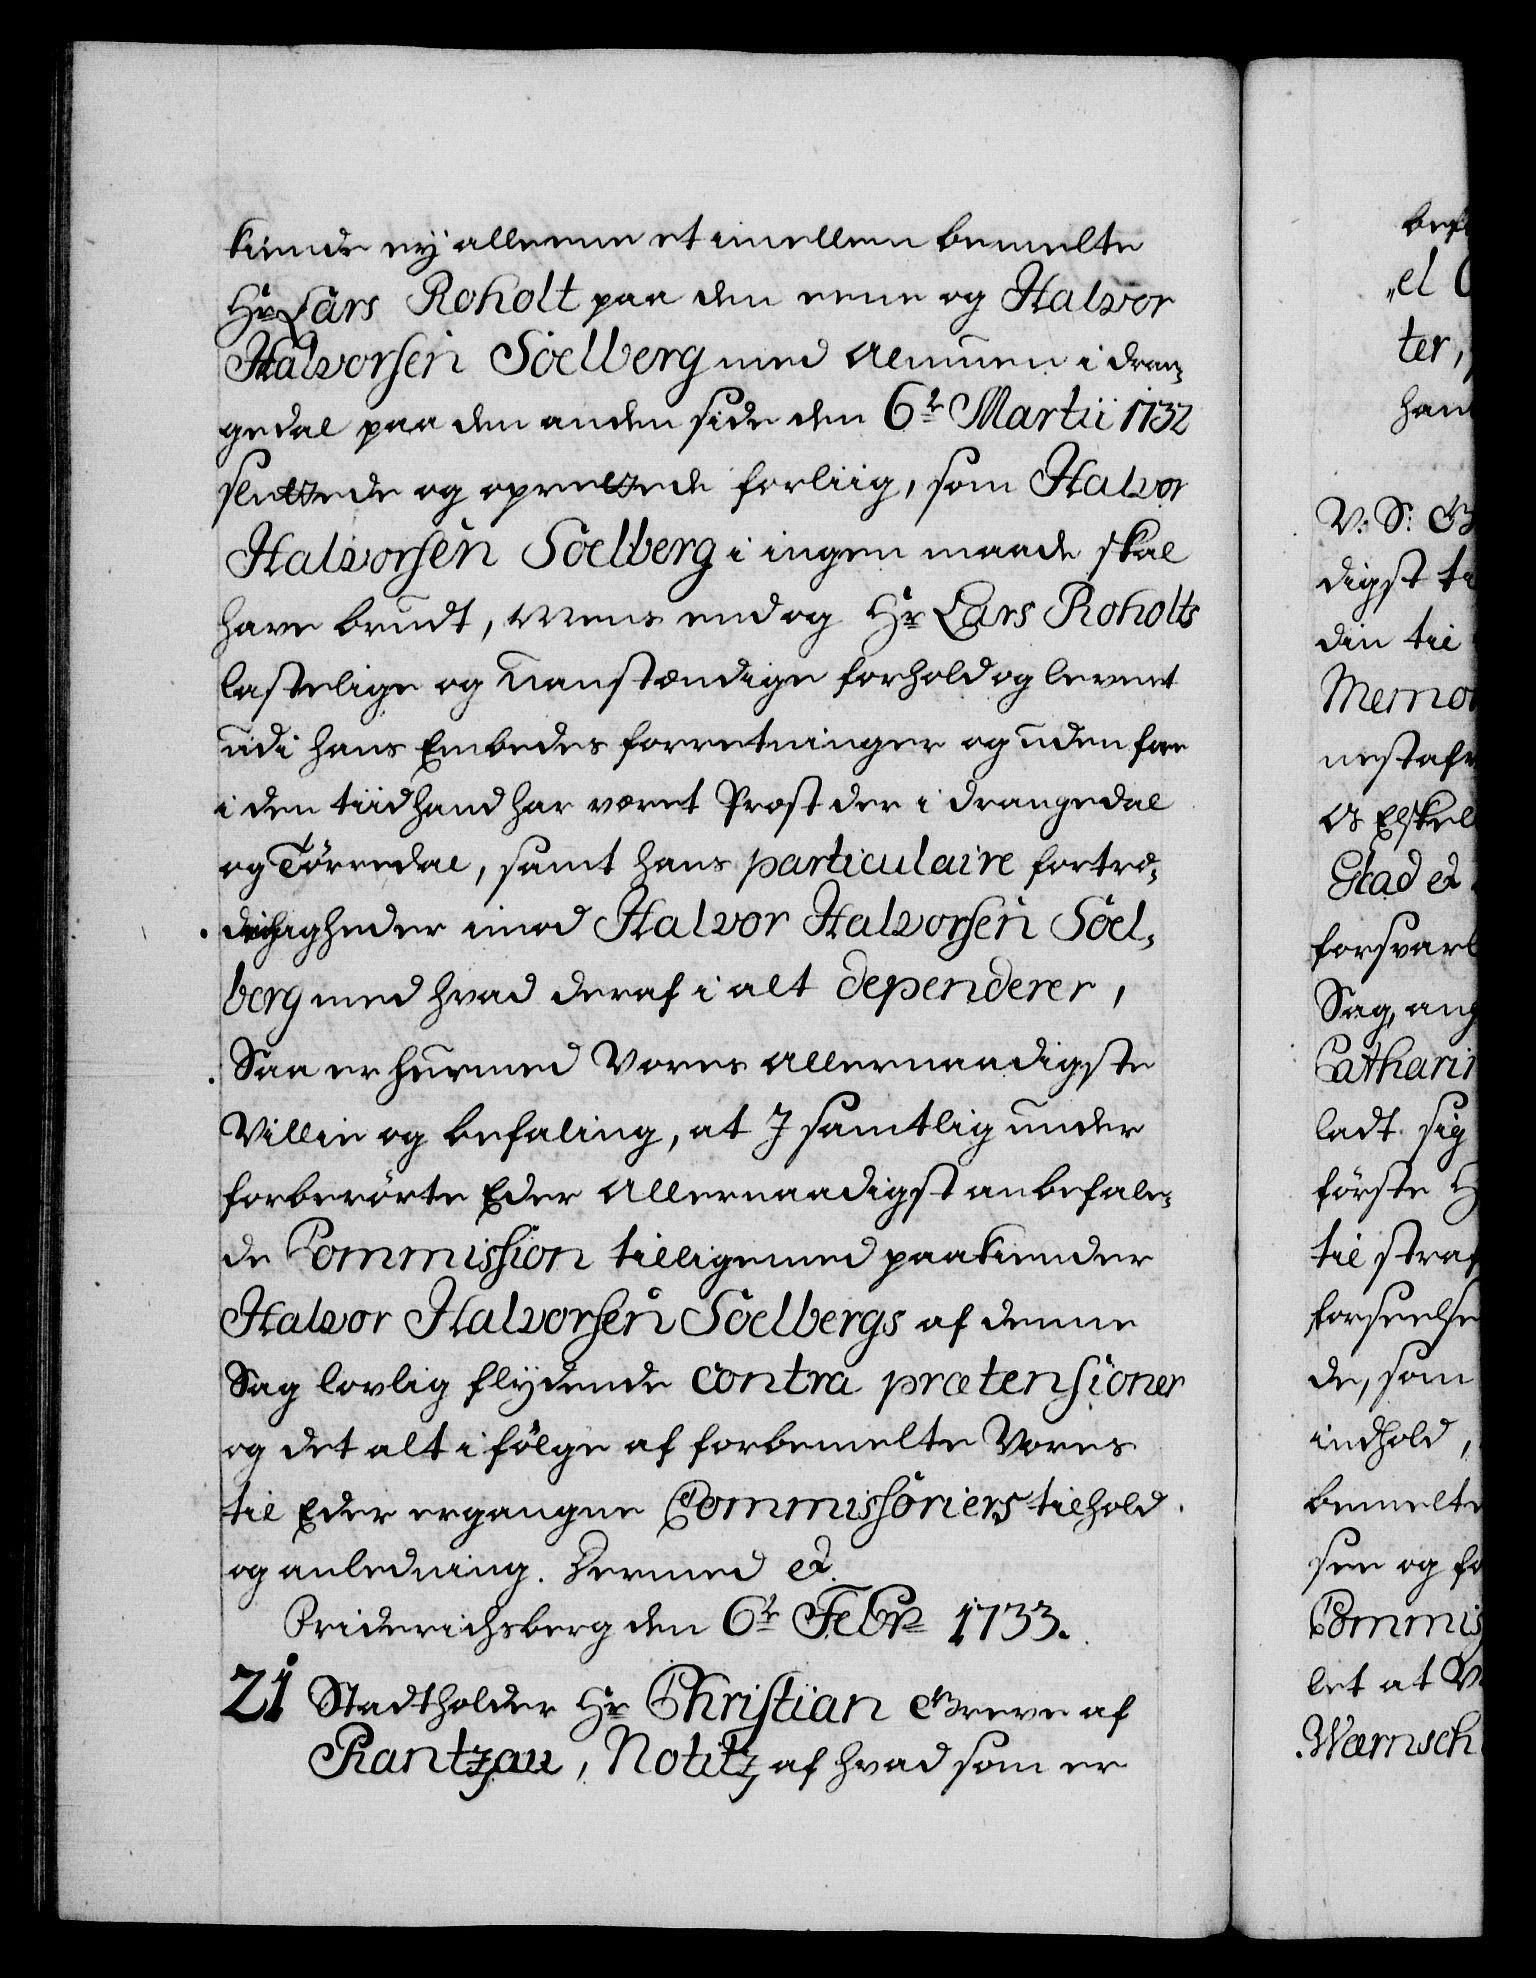 kiende ej alleene et imellem bemelte
Hr Lars Roholt paa den eene og Halvor
Halvorsen Söelberg med Almuen i Dran,
gedal paa den anden side den 6te Martii 1732
sluttede og oprettede forliig, som Halvor
Halvorsen Söelberg i ingen maade skal
have brudt, Mens endog Hr Lars Roholts
lastelige og uanstændige forhold og levnet
udi hans Embedes forretninger og uden for
i den tiid hand har været Præst der i Drangedal
og Törredal, samt hans particulaire fortræ,
dighigheder imod Halvor Halvorsen Söel,
berg med hvad deraf i alt dependerer,
Saa er hermed Vores allernaadigste
Villie og befaling, at I samtlig under
forberörte Eder Allernaadigst anbefale,
de Commission tilligemed paakiender
Halvor Halvorsen Söelbergs af denne
Sag lovlig flydende contra prætensioner
og det alt i fölge af forbemelte Vores
til Eder ergangne Commissoriers tilhold
og anledning. Dermed &.
Friderichsberg den 6te Febr 1733.
21 Stadtholder Hr Christian Greve af
Rantzau, Notitz af hvad som er
bef
el
ter,
han
V: S: G
digst ti
din til
Memo
nestafv
Os Elskel
Glad &
forsvarl
Sag, ang
Catharin
ladt sig
förste H
til straf
forseelse
de, som
indhold,
bemelte
sen og fo
Commis
let at V
Wærnsch